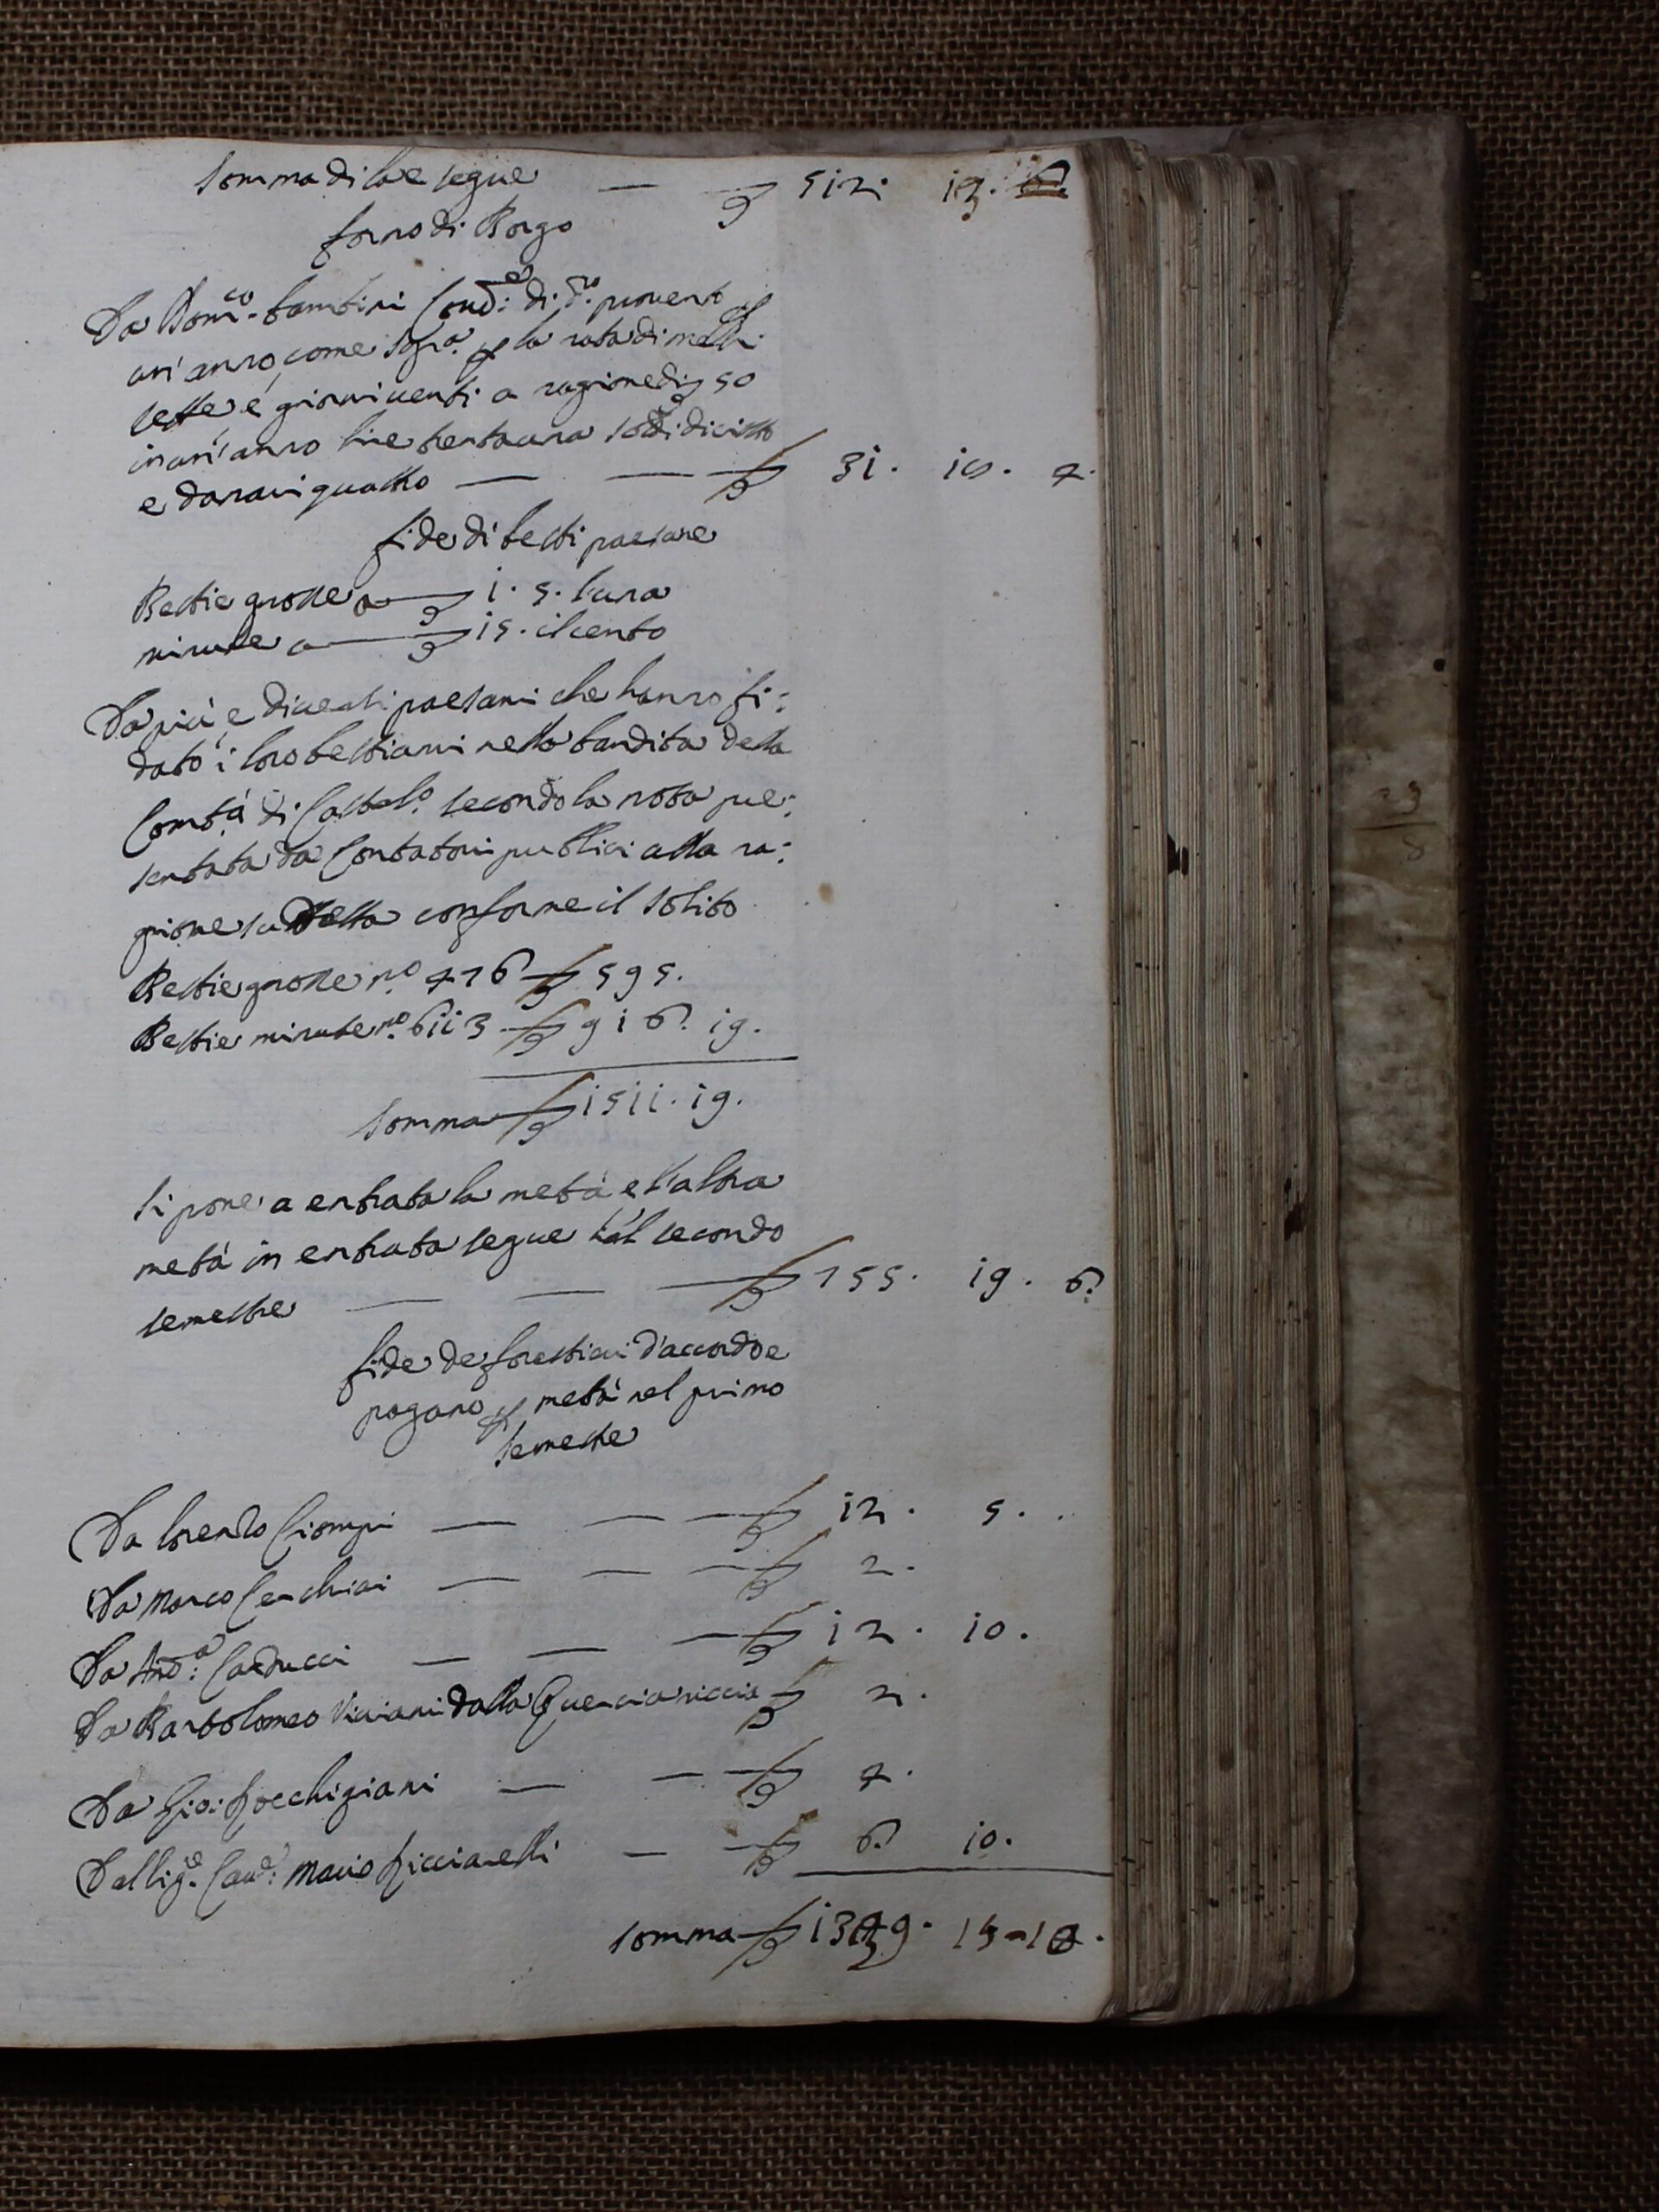 Somma di là e segue — £ 512. 13.
forno di Borgo
Da Dom.co bambini Cond.e di d.o provento p
un'anno come sopra p la rata di mesi
sette, e giorni venti a ragione di £ 50
in un'anno lire trentauna soldi diciotto
e danari quattro — — £ 31. 18. 4.
fide di besti paesane
Bestie grosse a — £ 1. 5. l'una
minute a — £ 15. il cento
Da più, e diversi paesani che hanno fi:
dato i loro bestiami nella bandita della
Comtà di Castel.o secondo la nota pre:
sentata da Contatori publici alla ra:
gione sudetta conforme il solito
Bestie grosse n.o 476 £ 595.
Bestie minute n.o 6113 £ 916. 19.
Somma £ 1511. 19.
Si pone a entrata la metà, e l'altra
metà in entrata segue nel secondo
semestre — — £ 755. 19. 6
fide de forestieri d'accordo e
pagano p metà nel primo
semestre
Da Lorenzo Ciompi — — £ 12. 5.
Da Marco Cerchiai — — £ 2.
Da And.a Carducci — — £ 12. 10.
Da Bartolomeo Viviani dalla Quercia riccia £ 2.
Da Gio: Rocchigiani — — £ 4.
Dal Sig.e Cav.e Mario Ricciarelli — — £ 6 10.
Somma £ 1339. 15 - 10.